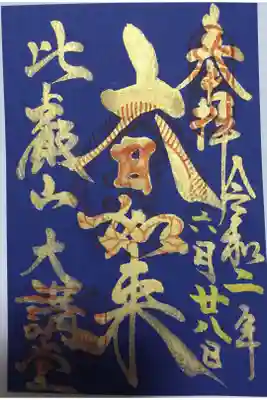 奉拝 令和二年
六月廿八日
大日如来
比叡山 大講堂